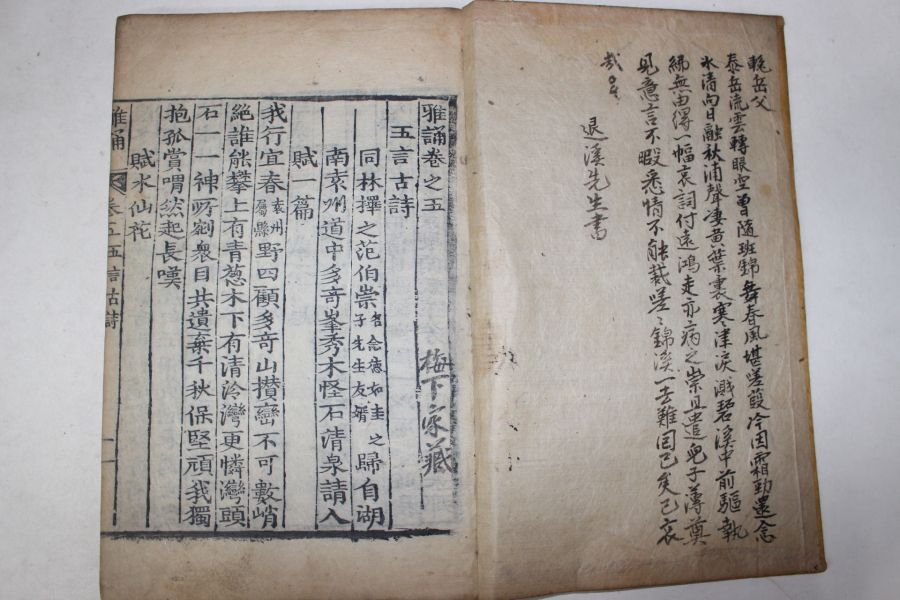 輓岳父
泰岳流雲轉眼空曾隨班錦舞春風堪嗟葭冷因霜勁還念
水清向日融秋浦聲凄黄葉裏寒津淚濺碧溪中前驅執
紼無由得一幅哀詞付遠鴻走亦病之祟且遣兒子薄奠
見意言不暇悉情不能裁嗟〻錦溪一去難回已矣已哀
哉
退溪先生書
雅誦卷之五
梅下家藏
五言古詩
同林擇之范伯崇名念德如圭之子先生友婿歸自湖
南袁州道中多奇峯秀木怪石清泉請人
賦一篇
我行宜春袁州屬縣野四顧多奇山攅巒不可數峭
絶誰能攀上有青葱木下有清泠灣更憐灣頭
石一一神所剜衆目共遺棄千秋保堅頑我獨
抱孤賞喟然起長嘆
賦水仙花
雅誦 卷五五言古詩 一